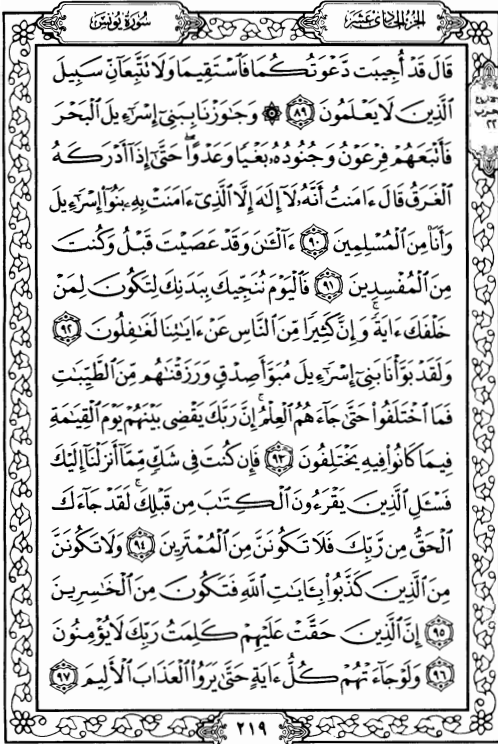 سُورَةُ يُونُسَ الجُزءُ الحَادِي عَشَرَ
قَالَ قَدْ أُجِيبَت دَّعْوَتُكُمَا فَٱسْتَقِيمَا وَلَا تَتَّبِعَآنِّ سَبِيلَ
ٱلَّذِينَ لَا يَعْلَمُونَ ٨٩ ۞ وَجَٰوَزْنَا بِبَنِىٓ إِسْرَٰٓءِيلَ ٱلْبَحْرَ
فَأَتْبَعَهُمْ فِرْعَوْنُ وَجُنُودُهُۥ بَغْيًا وَعَدْوًا ۖ حَتَّىٰٓ إِذَآ أَدْرَكَهُ
ٱلْغَرَقُ قَالَ ءَامَنتُ أَنَّهُۥ لَآ إِلَٰهَ إِلَّا ٱلَّذِىٓ ءَامَنَتْ بِهِۦ بَنُوٓا۟ إِسْرَٰٓءِيلَ
وَأَنَا۠ مِنَ ٱلْمُسْلِمِينَ ٩٠ ءَآلْـَٰٔنَ وَقَدْ عَصَيْتَ قَبْلُ وَكُنتَ
مِنَ ٱلْمُفْسِدِينَ ٩١ فَٱلْيَوْمَ نُنَجِّيكَ بِبَدَنِكَ لِتَكُونَ لِمَنْ
خَلْفَكَ ءَايَةً ۚ وَإِنَّ كَثِيرًا مِّنَ ٱلنَّاسِ عَنْ ءَايَٰتِنَا لَغَٰفِلُونَ ٩٢
وَلَقَدْ بَوَّأْنَا بَنِىٓ إِسْرَٰٓءِيلَ مُبَوَّأَ صِدْقٍ وَرَزَقْنَٰهُم مِّنَ ٱلطَّيِّبَٰتِ
فَمَا ٱخْتَلَفُوا۟ حَتَّىٰ جَآءَهُمُ ٱلْعِلْمُ ۚ إِنَّ رَبَّكَ يَقْضِى بَيْنَهُمْ يَوْمَ ٱلْقِيَٰمَةِ
فِيمَا كَانُوا۟ فِيهِ يَخْتَلِفُونَ ٩٣ فَإِن كُنتَ فِى شَكٍّ مِّمَّآ أَنزَلْنَآ إِلَيْكَ
فَسْـَٔلِ ٱلَّذِينَ يَقْرَءُونَ ٱلْكِتَٰبَ مِن قَبْلِكَ ۚ لَقَدْ جَآءَكَ
ٱلْحَقُّ مِن رَّبِّكَ فَلَا تَكُونَنَّ مِنَ ٱلْمُمْتَرِينَ ٩٤ وَلَا تَكُونَنَّ
مِنَ ٱلَّذِينَ كَذَّبُوا۟ بِـَٔايَٰتِ ٱللَّهِ فَتَكُونَ مِنَ ٱلْخَٰسِرِينَ
٩٥ إِنَّ ٱلَّذِينَ حَقَّتْ عَلَيْهِمْ كَلِمَتُ رَبِّكَ لَا يُؤْمِنُونَ
٩٦ وَلَوْ جَآءَتْهُمْ كُلُّ ءَايَةٍ حَتَّىٰ يَرَوُا۟ ٱلْعَذَابَ ٱلْأَلِيمَ ٩٧
٢١٩
حزب
٢٢